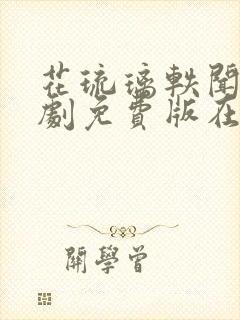 花琉璃軼聞
劇免費版在
開學曾